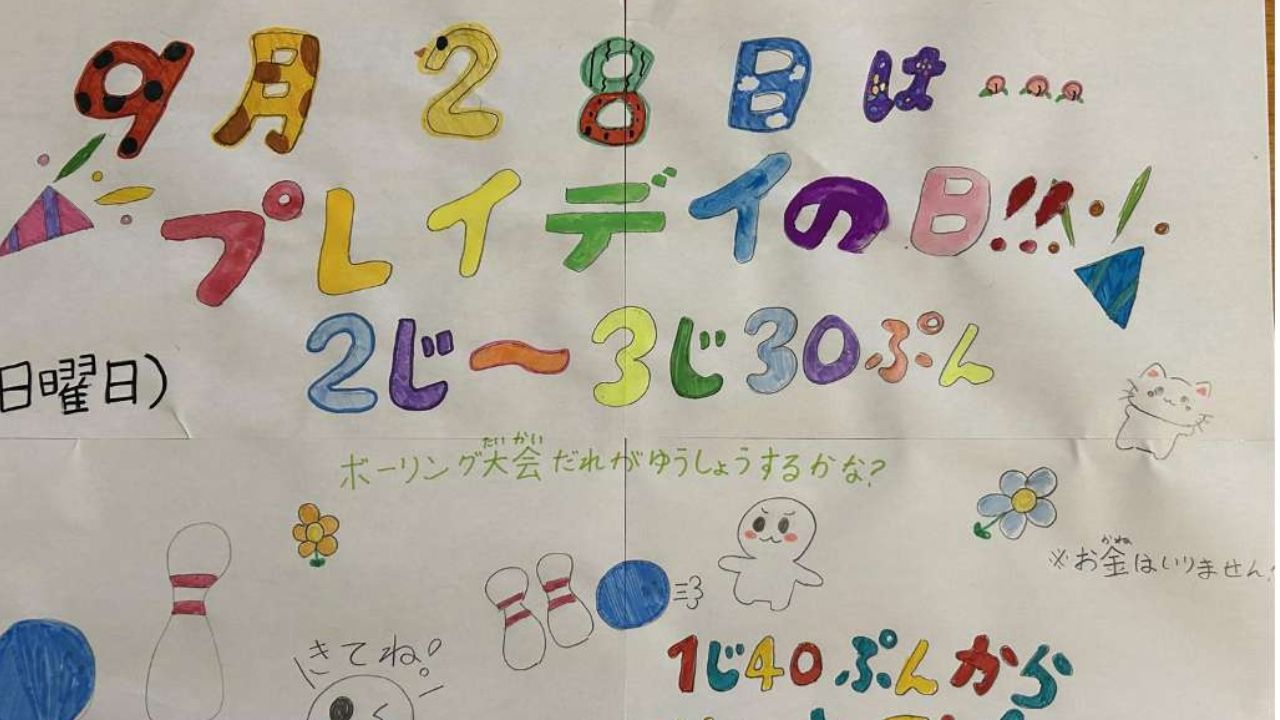 9月28日は…
プレイデイの日!!!
2じ～3じ30ぷん
日曜日)
たいかい
ボーリング大会だれがゆうしょうするかな?
かね
※お金はいりません
きてね!
1じ40ぷんから